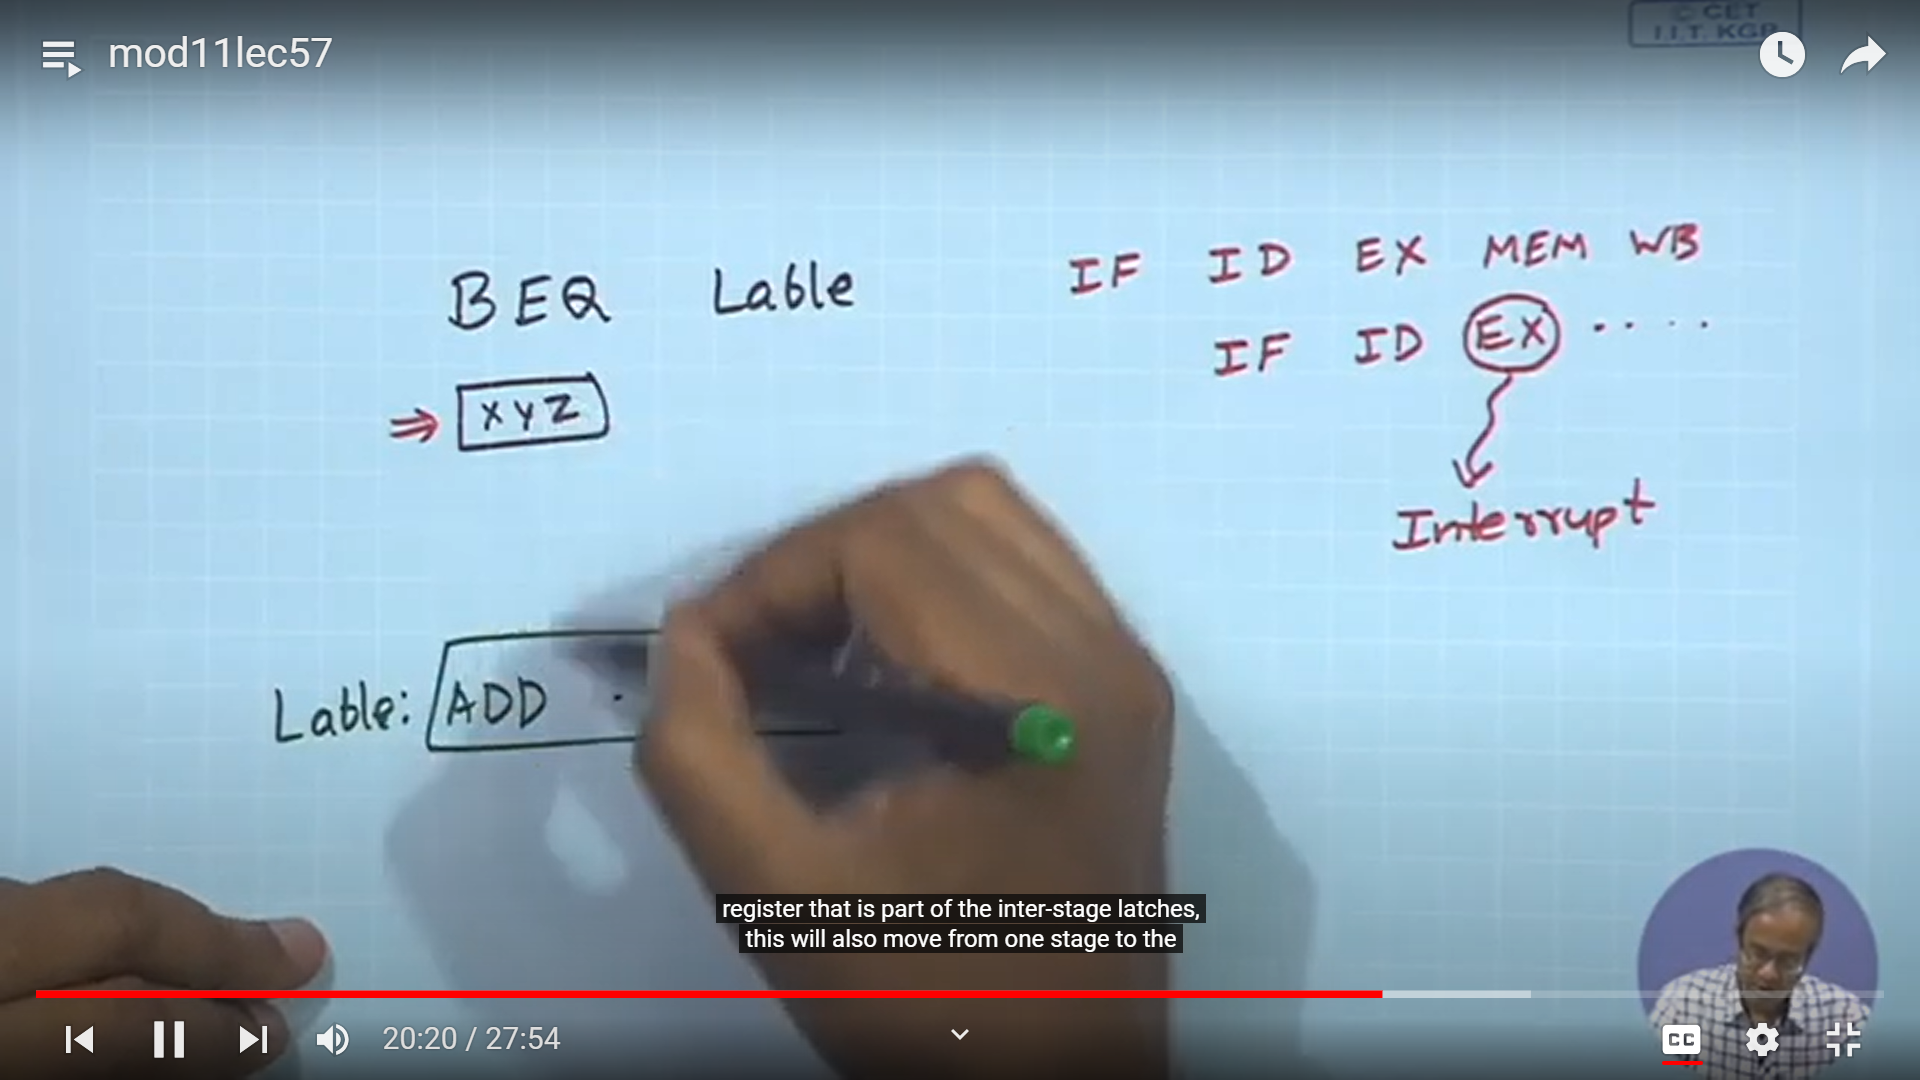 © CET
I.I.T. KGP
mod11lec57
BEQ Lable
IF ID EX MEM WB
IF ID EX ....
XYZ
Interrupt
Lable: ADD .
register that is part of the inter-stage latches,
this will also move from one stage to the
20:20 / 27:54
CC